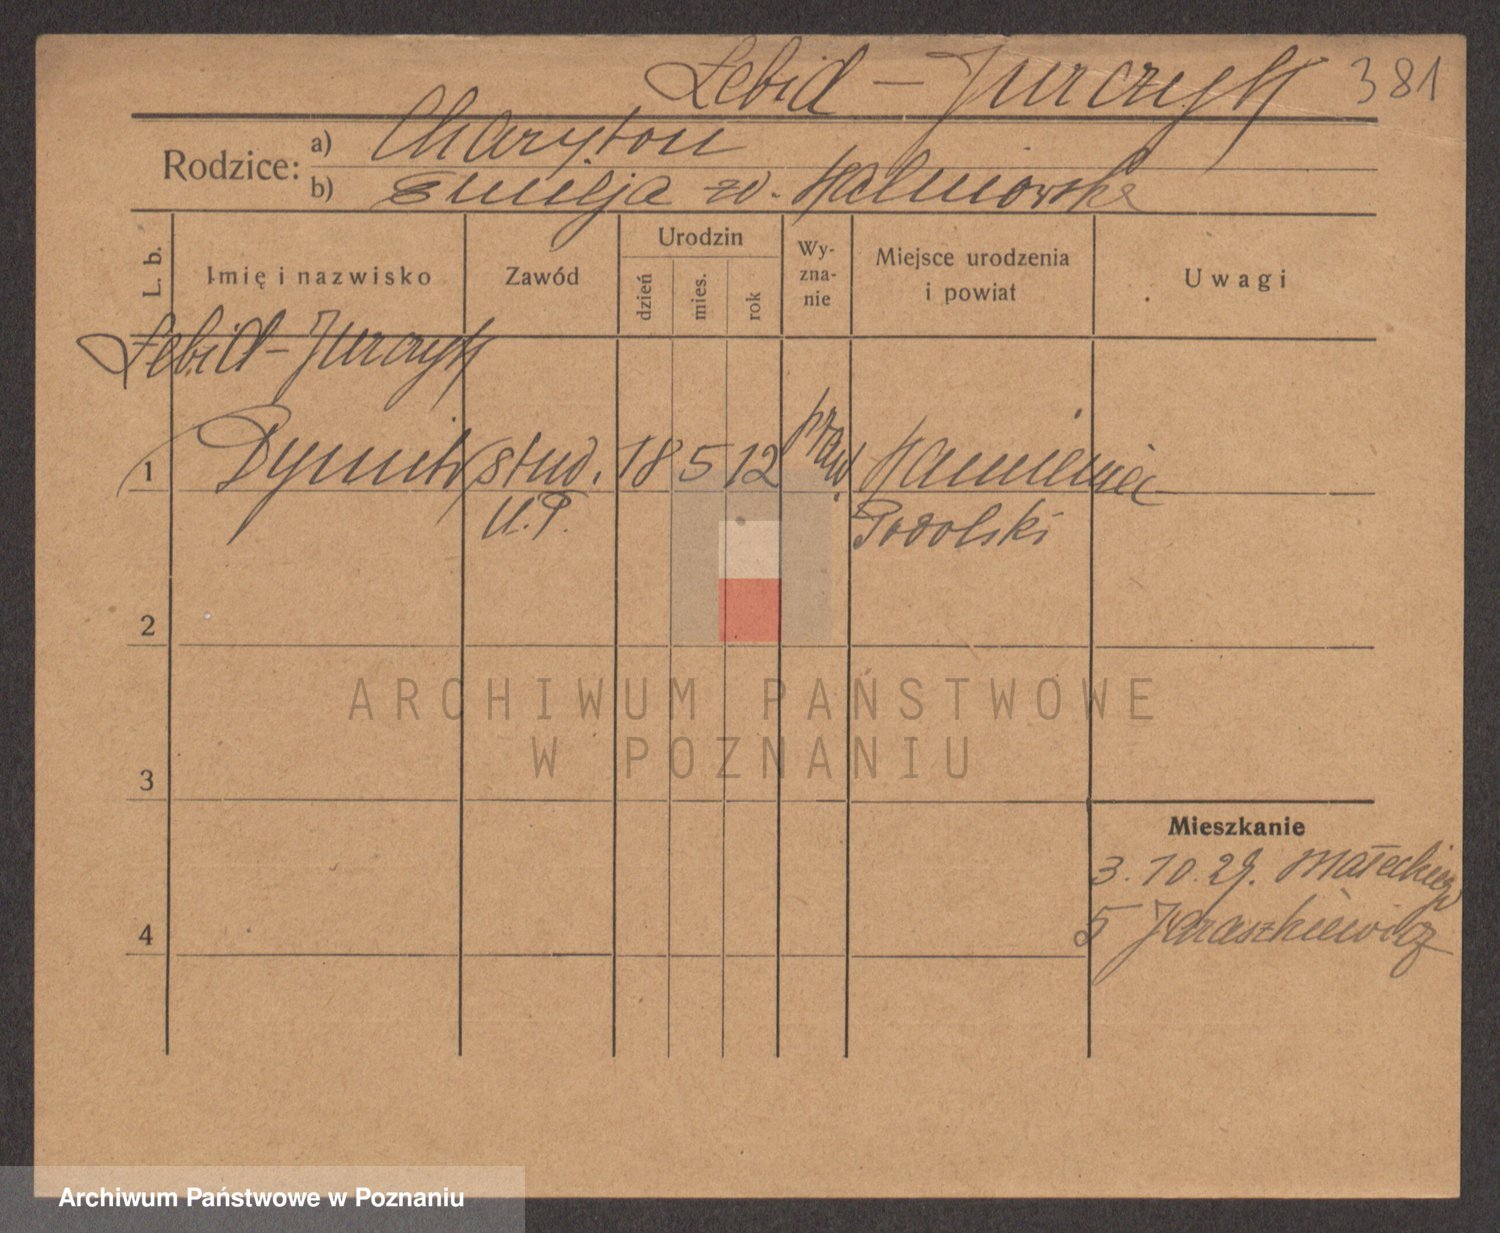 Łebid - Jurczyk 381
Rodzice: a) Charyton
b) Emilja zd. Kalinowska
L. b. Imię i nazwisko Zawód Urodzin dzień mies. rok Wy-zna-nie Miejsce urodzenia i powiat Uwagi
Łebid - Jurczyk
1 Dymitr stud. 18 5 12 praw. Kamieniec
U.P. Podolski
2
ARCHIWUM PAŃSTWOWE
W POZNANIU
3
Mieszkanie
3.10.29. Małeckiego
4 5 Jaraszkiewicz
Archiwum Państwowe w Poznaniu